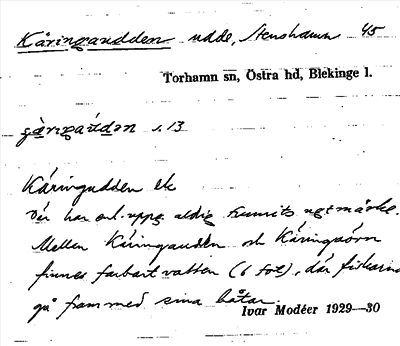 Käringaudden udde, Stenshamn 45
Torhamn sn, Östra hd, Blekinge l.
s. 13
Käringudden ek
Där har enl. uppg. aldrig funnits ngt märke.
Mellan Käringaudden och Käringaörn
finnes farbart vatten (6 fot), där fiskarna
gå fram med sina båtar.
Ivar Modéer 1929—30